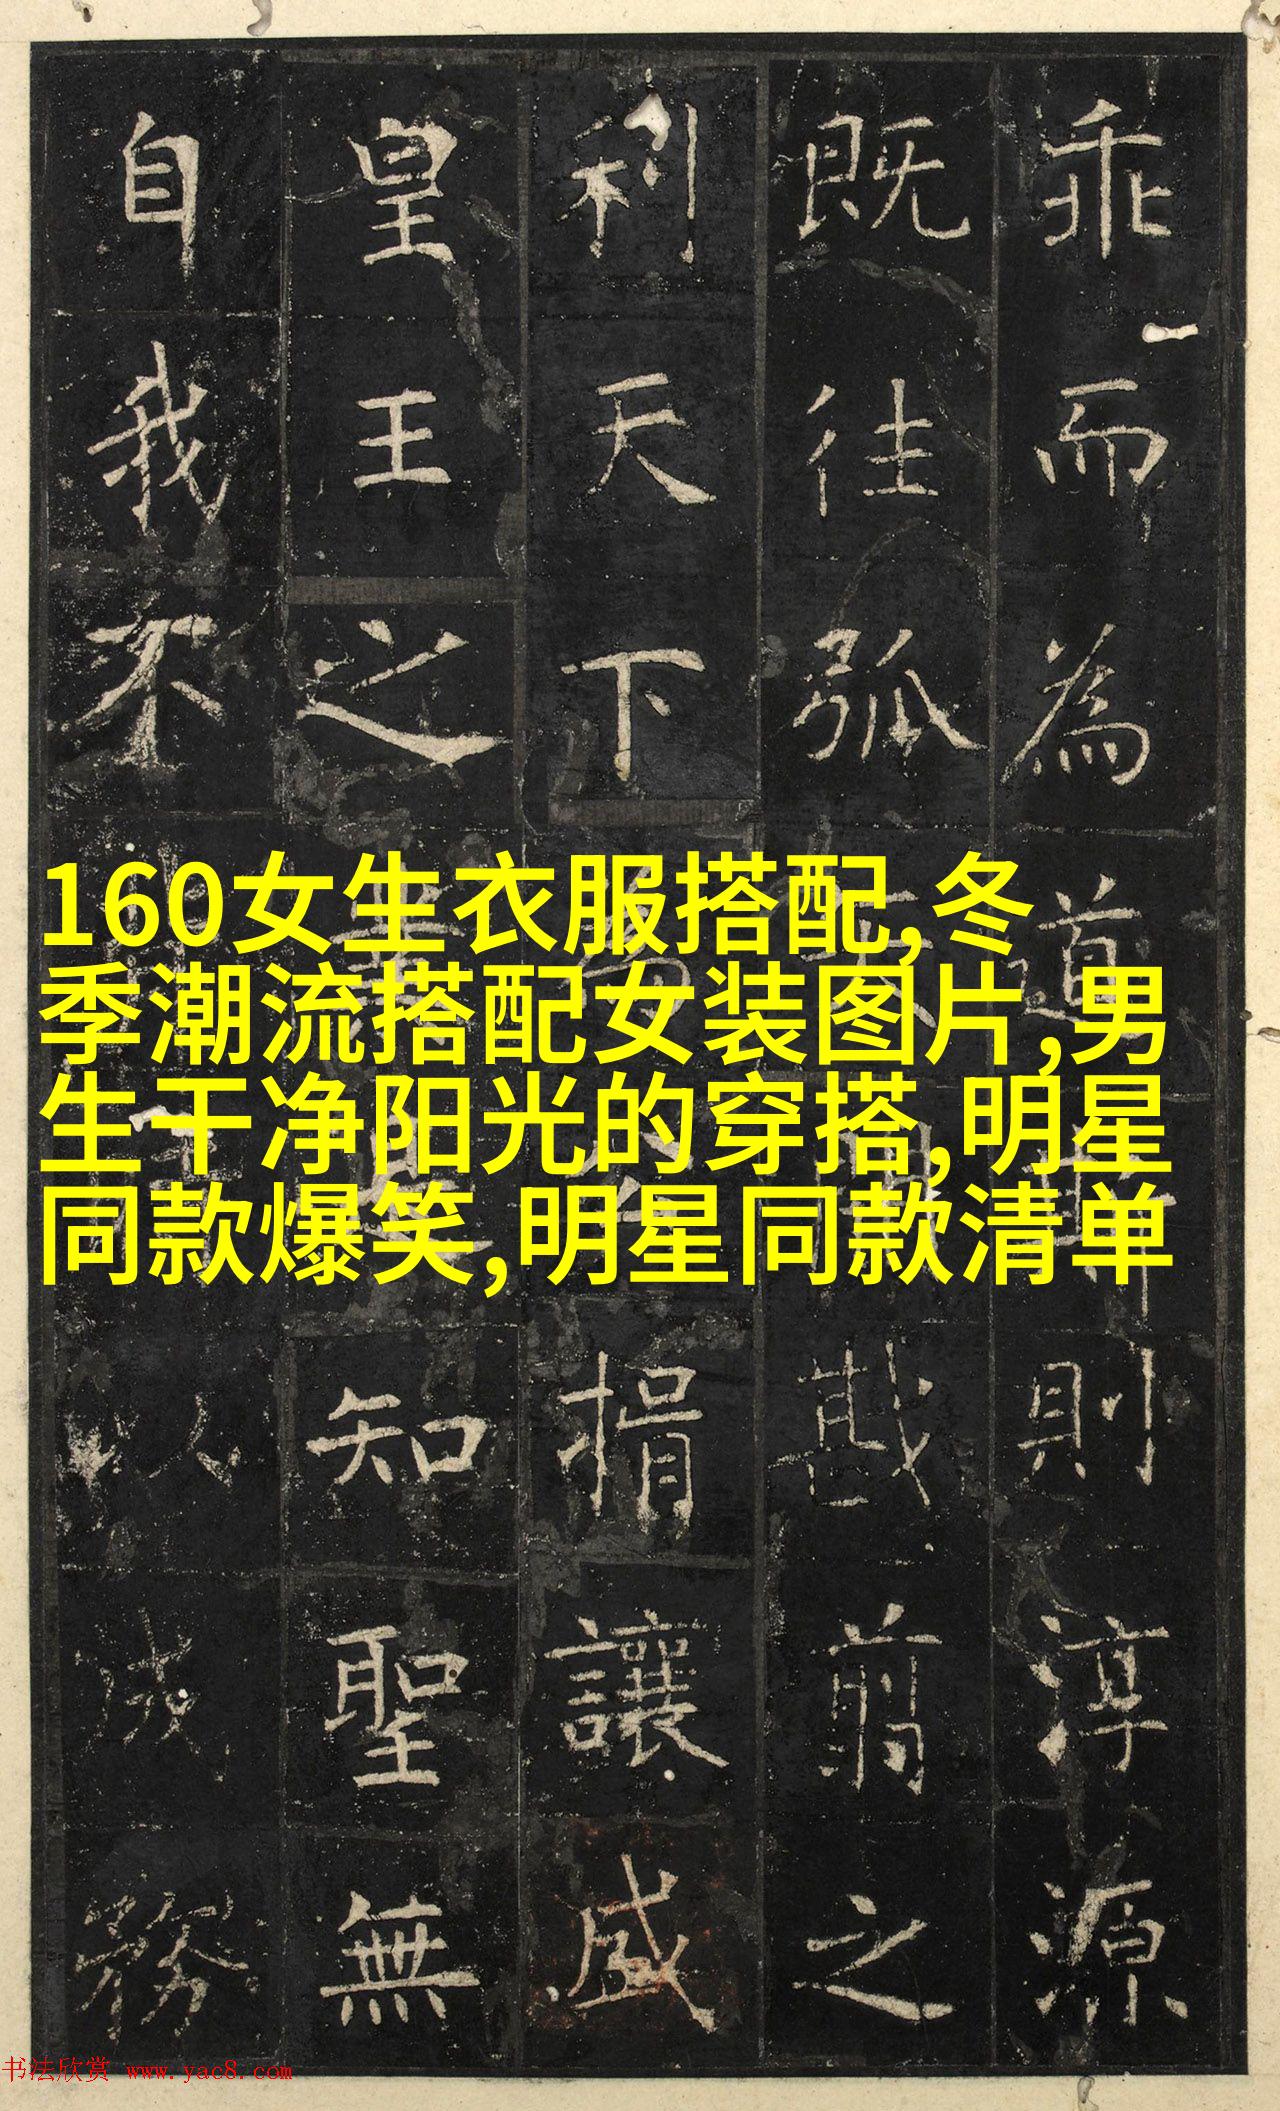 乖而為道則淳源
既往弧戡翦之
利天下揖讓
皇王之知聖無
自我不以成務
160女生衣服搭配,冬
季潮流搭配女装图片,男
生干净阳光的穿搭,明星
同款爆笑,明星同款清单
书法欣赏 www.yac8.com